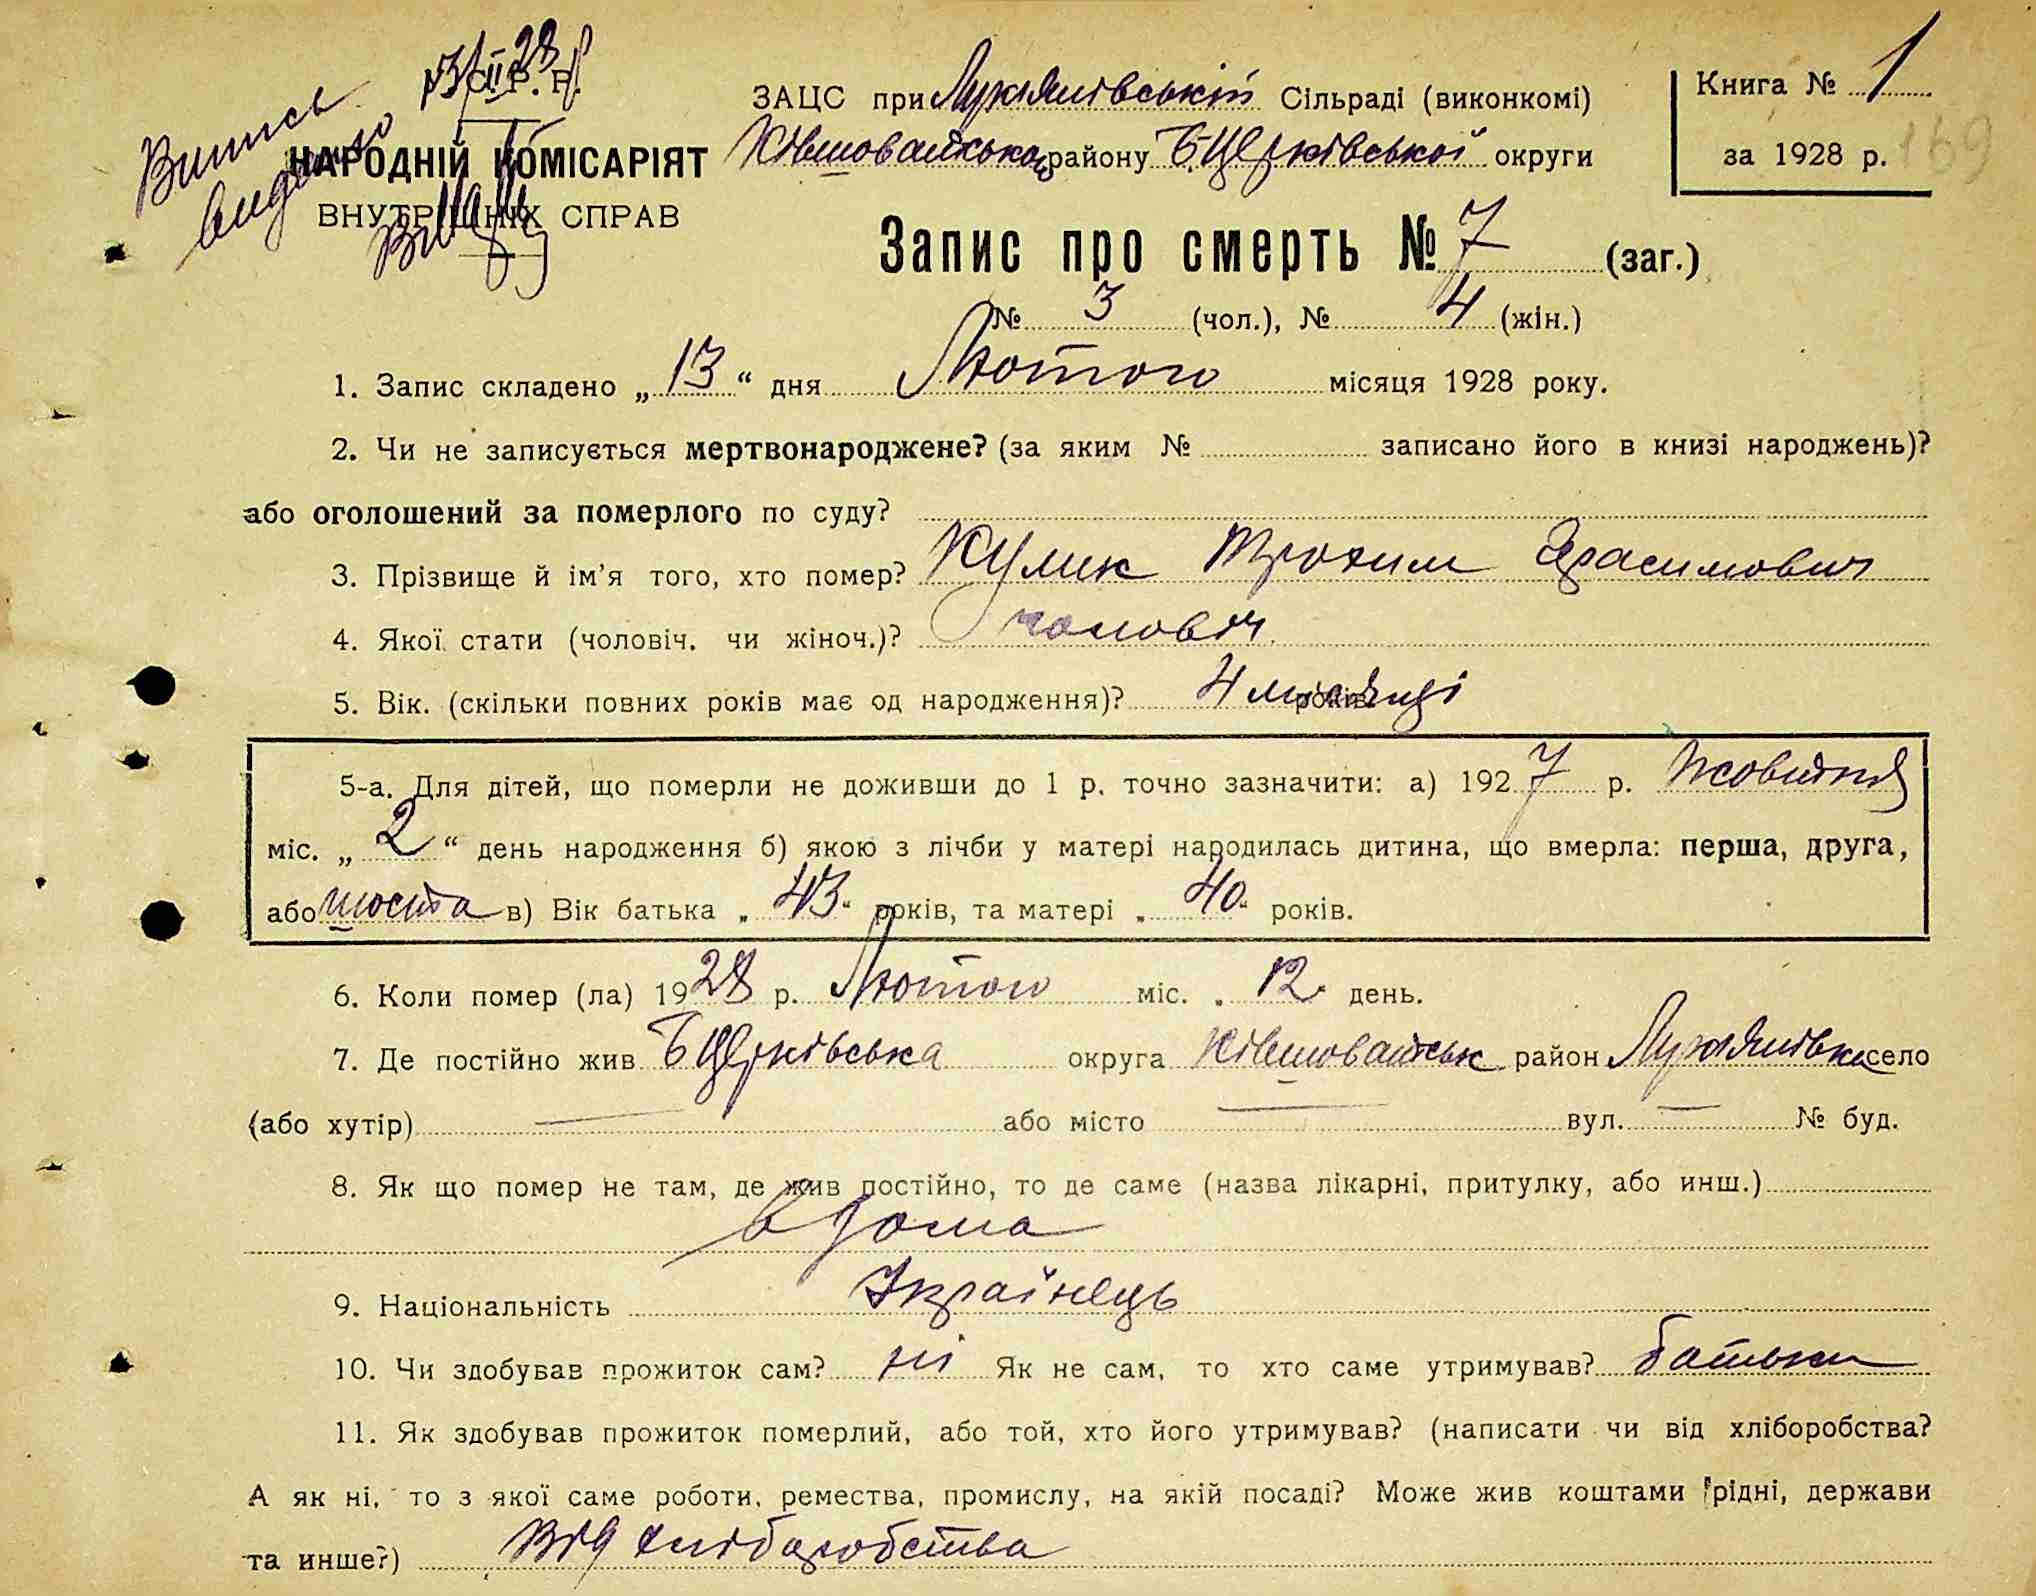 Випись видано 13/II 28
У.С.Р.Р.
НАРОДНІЙ КОМІСАРІЯТ
ВНУТРІШНІХ СПРАВ
ЗАЦС при Лук'янівській Сільраді (виконкомі)
Ківшоватськ району Б-Церківської округи
Книга № 1
за 1928 р.
169
Запис про смерть № 7 (заг.)
№ 3 (чол.), № 4 (жін.)
1. Запис складено „ 13 “ дня Лютого місяця 1928 року.
2. Чи не записується мертвонароджене? (за яким № записано його в книзі народжень)?
або оголошений за померлого по суду?
3. Прізвище й ім'я того, хто помер? Кулик Трохим Гарасимович
4. Якої стати (чоловіч. чи жіноч.)? чоловіч
5. Вік. (скільки повних років має од народження)? 4 місяці років
5-а. Для дітей, що померли не доживши до 1 р. точно зазначити: а) 1927 р. Жовтня
міс. „ 2 “ день народження б) якою з лічби у матері народилась дитина, що вмерла: перша, друга,
або шоста в) Вік батька „ 43 “ років, та матері „ 40 “ років.
6. Коли помер (ла) 1928 р. Лютого міс. „ 12 день.
7. Де постійно жив Б Церківська округа Ківшоватськ район Лук'янівка село
(або хутір) — або місто — вул. — № буд.
8. Як що помер не там, де жив постійно, то де саме (назва лікарні, притулку, або инш.)
вдома
9. Національність Українець
10. Чи здобував прожиток сам? ні Як не сам, то хто саме утримував? батьки
11. Як здобував прожиток померлий, або той, хто його утримував? (написати чи від хліборобства?
А як ні, то з якої саме роботи, ремества, промислу, на якій посаді? Може жив коштами рідні, держави
та инше?) Від хліборобства